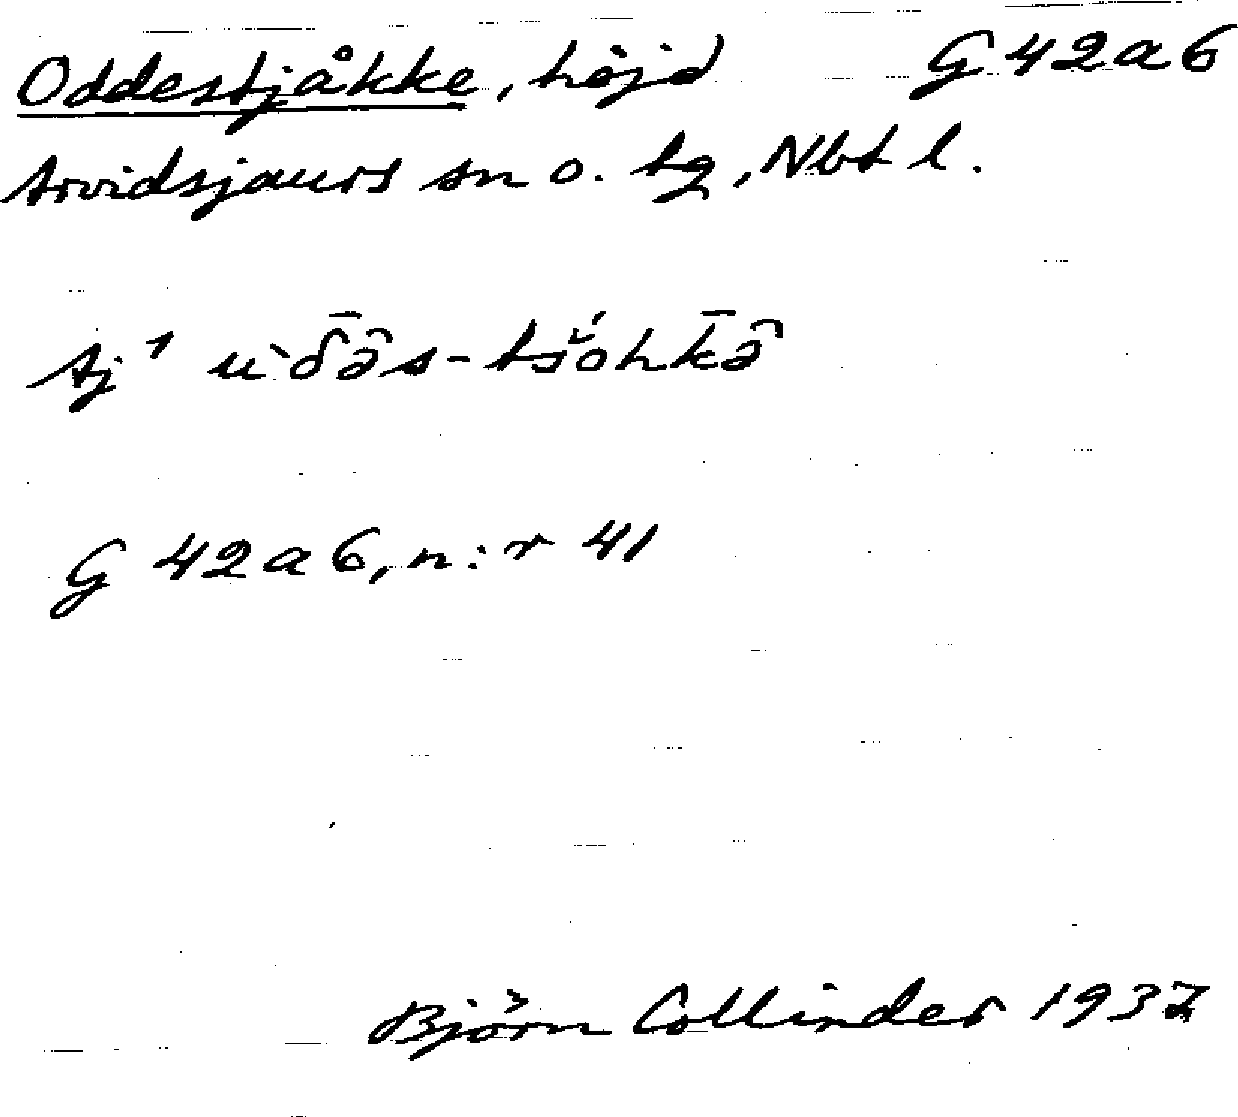 Oddestjåkke, höjd G 42 a 6
Arvidsjaurs sn o. tg, Nbt l.
Aj¹ ùδ̄ə̂s-tš́ohk̄ə̂
G 42 a 6, n:r 41
Björn Collinder 1937